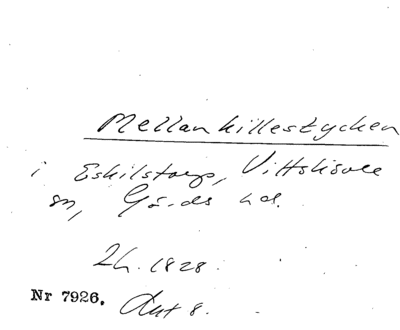 Mellankillestycken
i Eskilstorp, Vittskövle
sn, Gärds hd.
Lh. 1828.
Nr 7926. Akt 8.